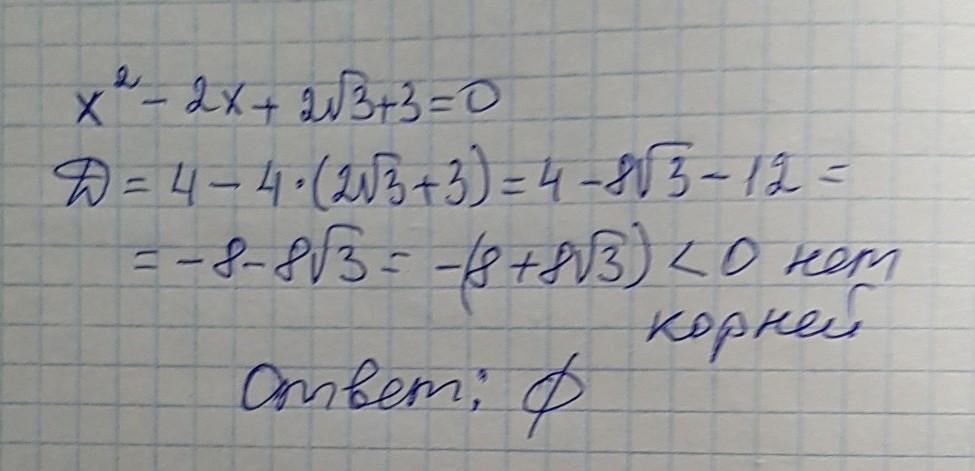 x² - 2x + 2√3+3=0
D = 4 - 4·(2√3+3) = 4 - 8√3 - 12 =
= -8-8√3 = -(8+8√3) < 0 нет
корней
Ответ: ∅